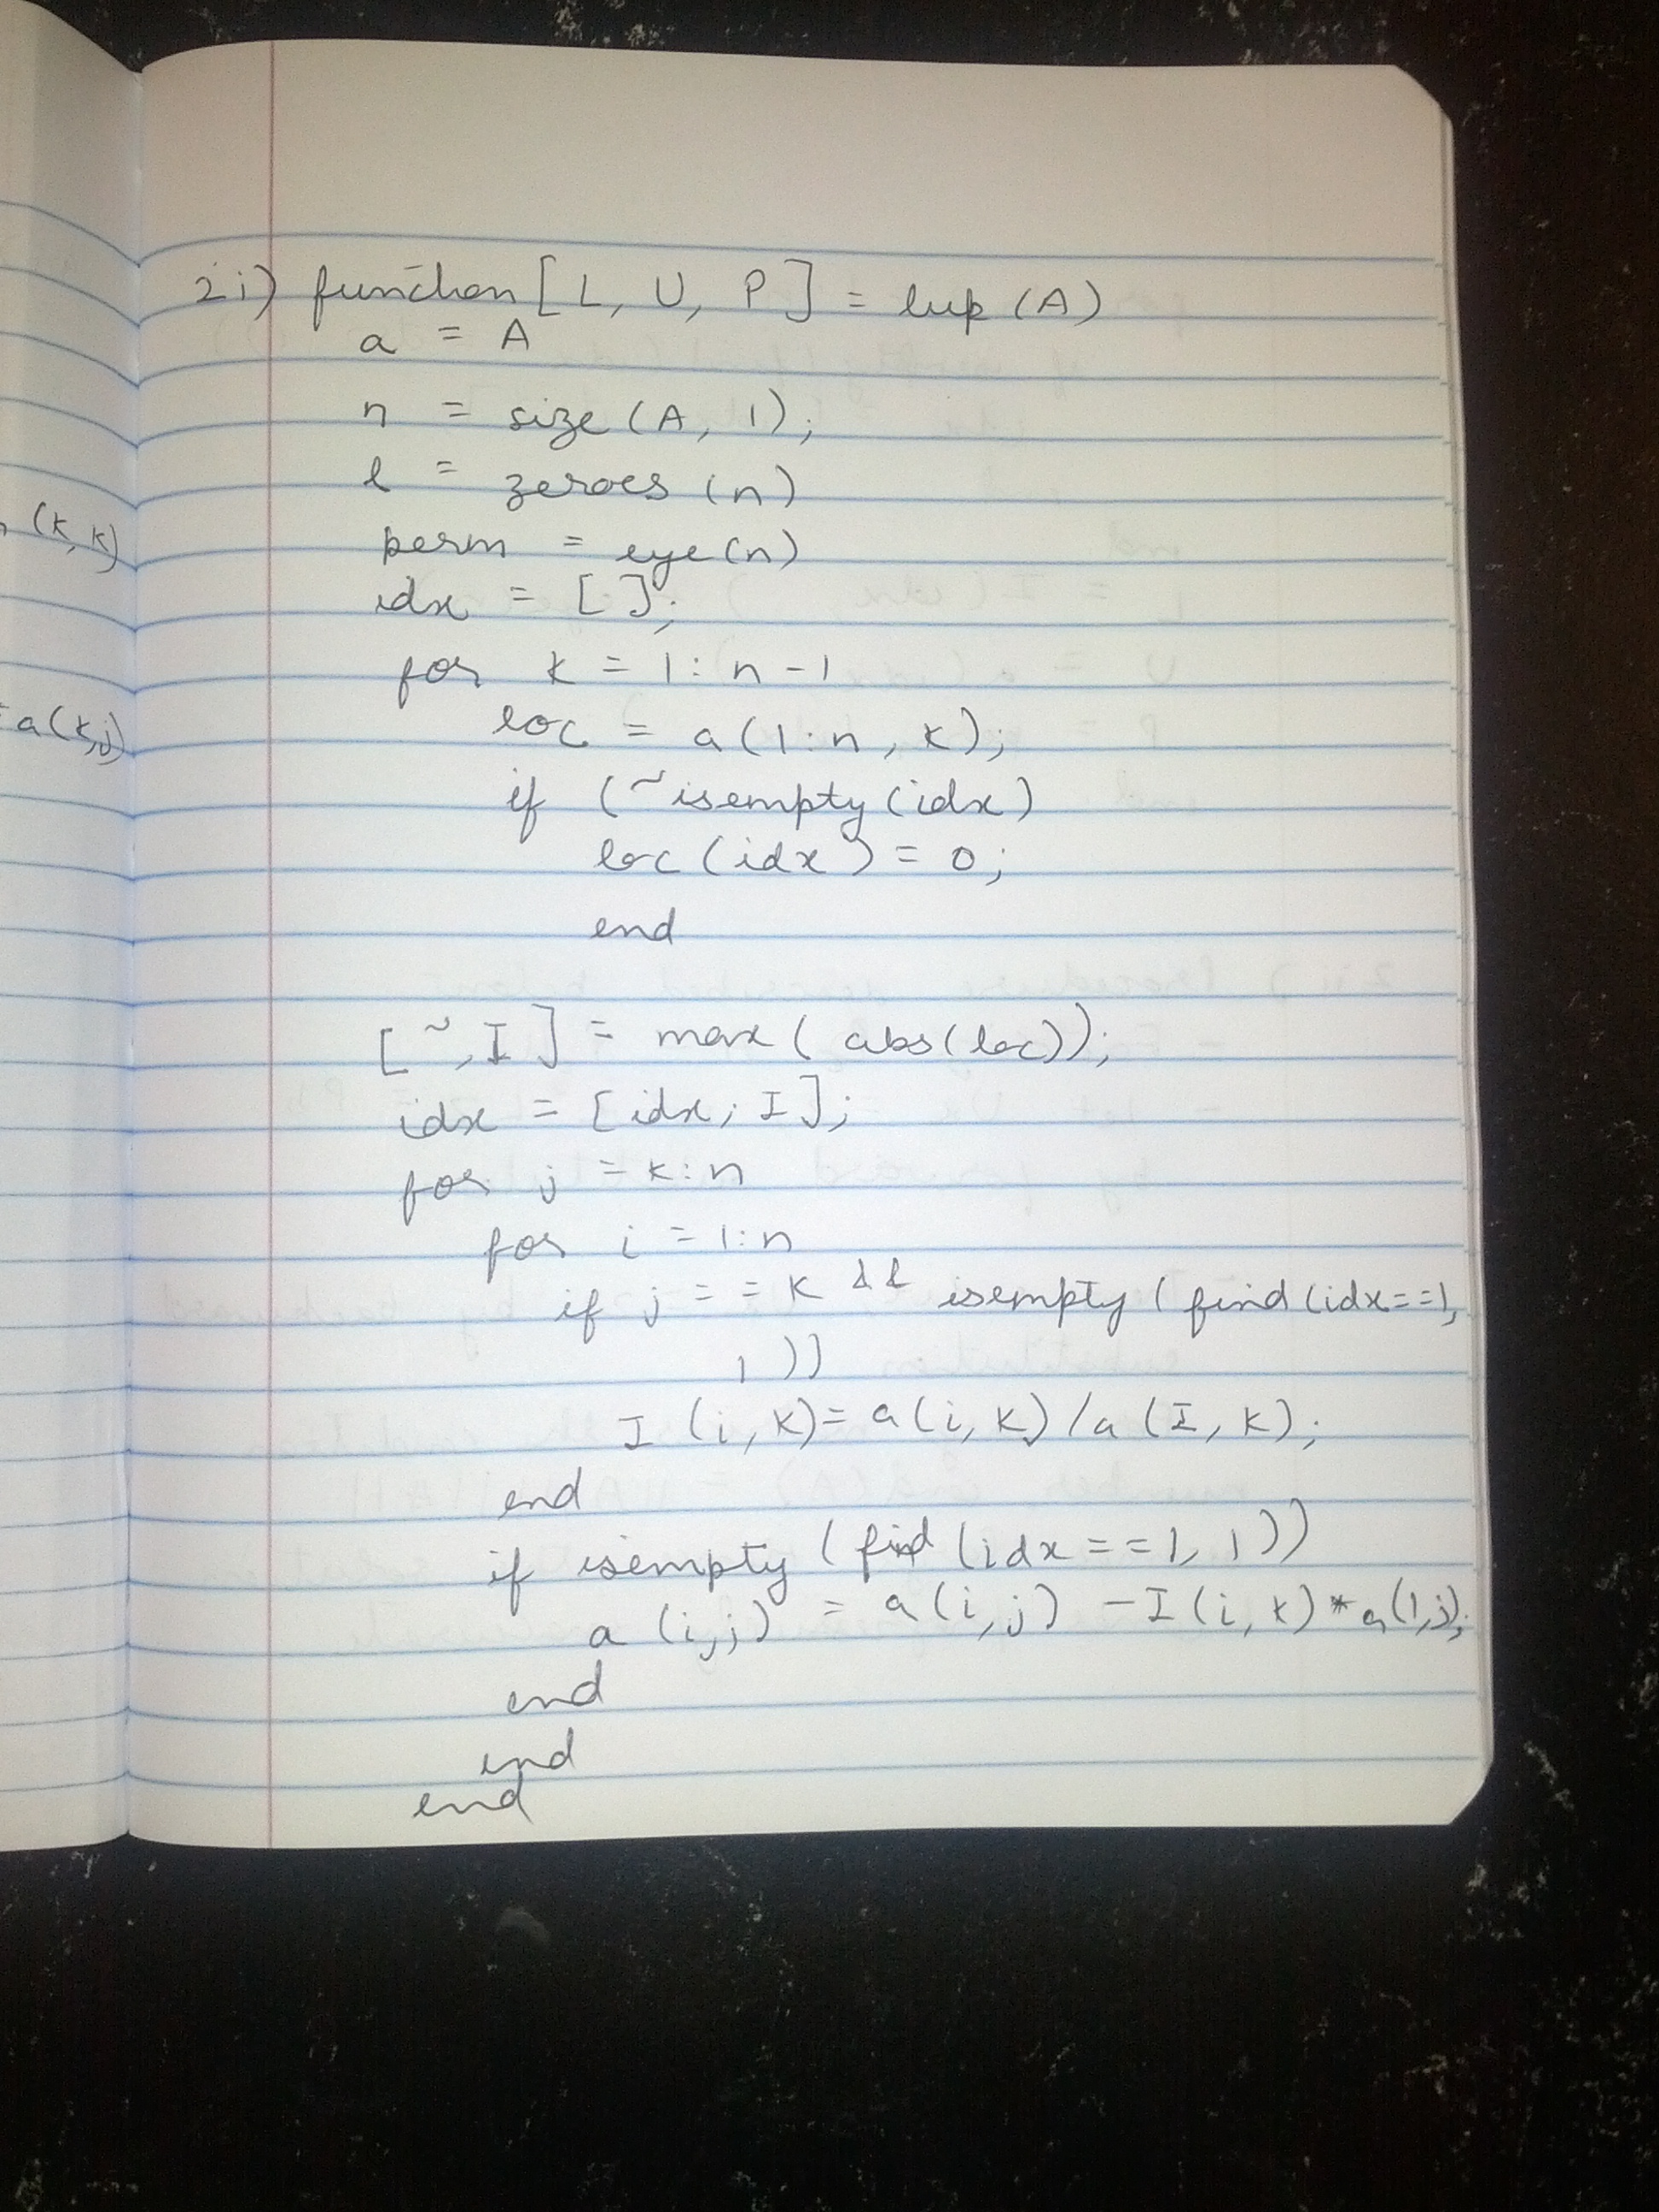 2i) function [L, U, P] = lup (A)
a = A
n = size (A, 1);
l = zeroes (n)
perm = eye (n)
idx = [ ];
for k = 1:n-1
loc = a (1:n, k);
if (~isempty (idx)
loc (idx) = 0;
end
[~, I] = max ( abs(loc));
idx = [idx; I];
for j = k:n
for i = 1:n
if j == k && isempty ( find (idx==1,
1 ))
I (i, k) = a (i, k) / a (I, k);
end
if isempty (find (idx ==1, 1))
a (i,j) = a (i,j) - I (i, k) * a (1,j);
end
end
end
(k, k)
a(k,j)